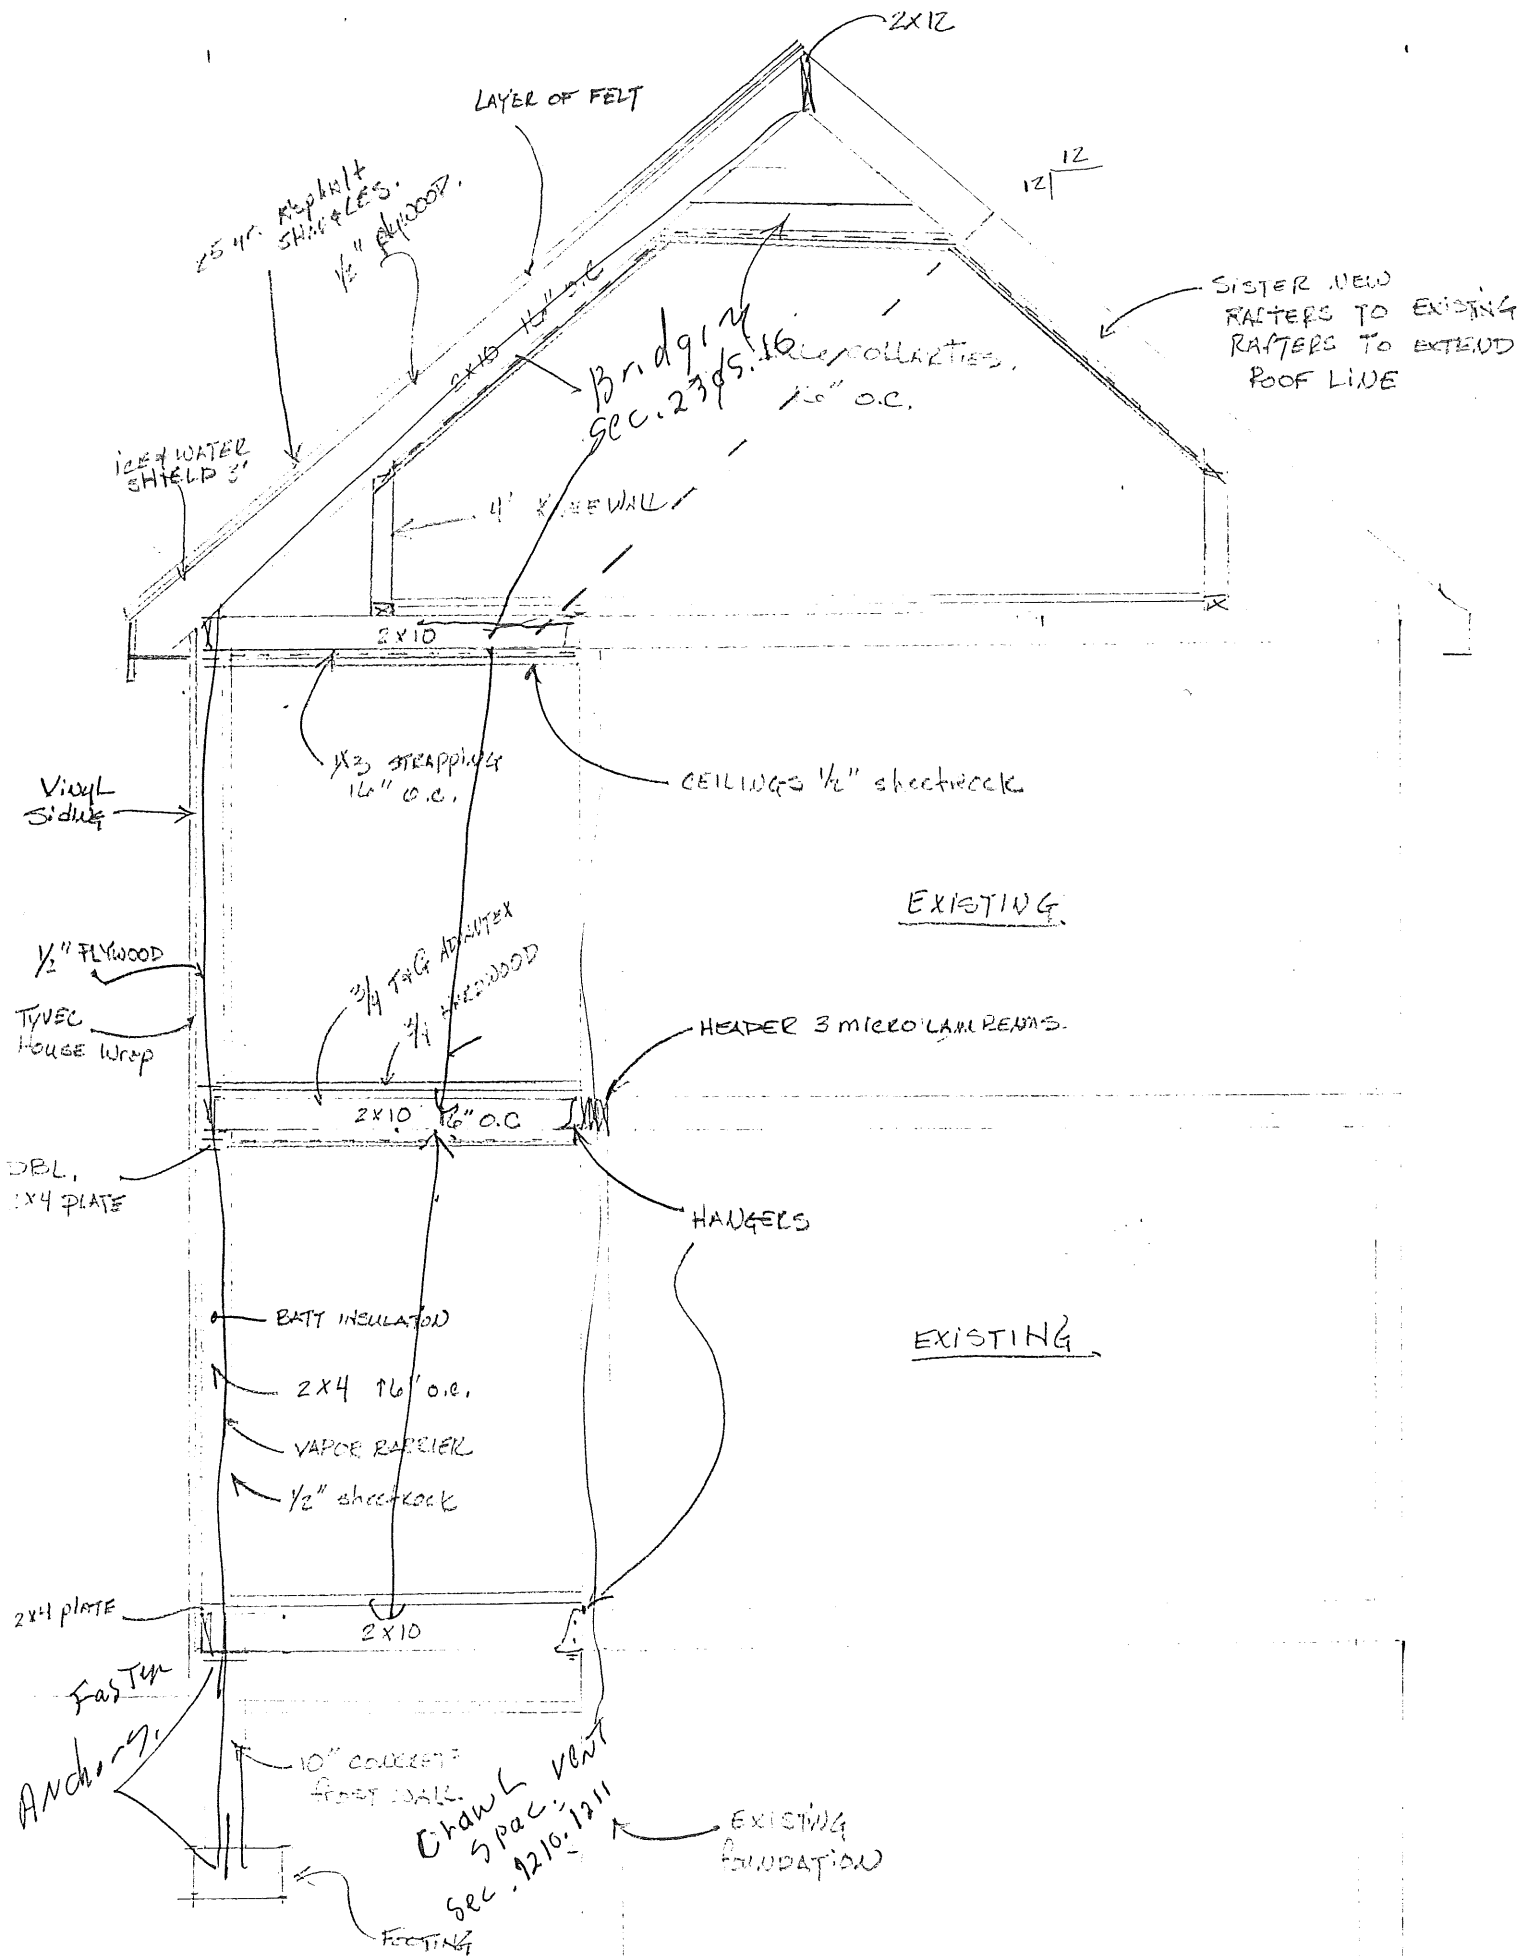 2X12
LAYER OF FELT
12
12
25 yr. Asphalt
SHINGLES.
1/2" PLYWOOD.
2X10 16" O.C
SISTER NEW
RAFTERS TO EXISTING
RAFTERS TO EXTEND
ROOF LINE
Bridging
Sec. 23
COLLARTIES.
16" O.C.
ICE & WATER
SHIELD 3'
4' KNEEWALL
2X10
1X3 STRAPPING
16" O.C.
CEILINGS 1/2" sheetrock
Vinyl
Siding
EXISTING
1/2" PLYWOOD
3/4 T&G ADVNTEX
3/4 HARDWOOD
TYVEC
HOUSE Wrap
HEADER 3 MICRO LAM BEAMS.
2X10 16" O.C
DBL.
2X4 PLATE
HANGERS
BATT INSULATON
EXISTING
2X4 16" O.C.
VAPOR BARRIER
1/2" sheetrock
2X4 PLATE
2X10
Fasten
Anchors,
10" CONCRETE
FROST WALL.
Crawl
Space
VENT
Sec. 1210.1211
EXISTING
FOUNDATION
FOOTING